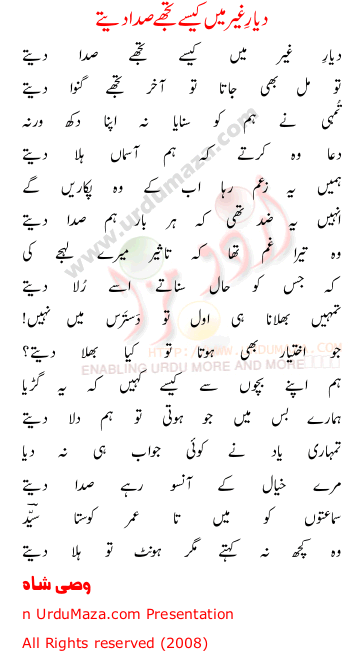 دیارِ غیر میں کیسے تجھے صدا دیتے
دیارِ غیر میں کیسے تجھے صدا دیتے
تو مل بھی جاتا تو آخر تجھے گنوا دیتے
تمہی نے ہم کو سنایا نہ اپنا دکھ ورنہ
دعا وہ کرتے کہ ہم آسماں ہلا دیتے
ہمیں یہ زعم رہا اب کے وہ پکاریں گے
انہیں یہ ضد تھی کہ ہر بار ہم صدا دیتے
وہ تیرا غم تھا کہ تاثیر میرے لہجے کی
کہ جس کو حال سناتے اسے رُلا دیتے
تمہیں بھلانا ہی اول تو دَسترَس میں نہیں!
جو اختیار بھی ہوتا تو کیا بھلا دیتے؟
ہم اپنے بچوں سے کیسے کہیں کہ یہ گڑیا
ہمارے بس میں جو ہوتی تو ہم دلا دیتے
تمہاری یاد نے کوئی جواب ہی نہ دیا
مرے خیال کے آنسو رہے صدا دیتے
سماعتوں کو میں تا عمر کوستا سیّد
وہ کچھ نہ کہتے مگر ہونٹ تو ہلا دیتے
وصی شاہ
n UrduMaza.com Presentation
All Rights reserved (2008)
www.urdumaza.com
اردو مزا
HTTP://WWW.URDUMAZA.COM
ENABLING URDU MORE AND MORE